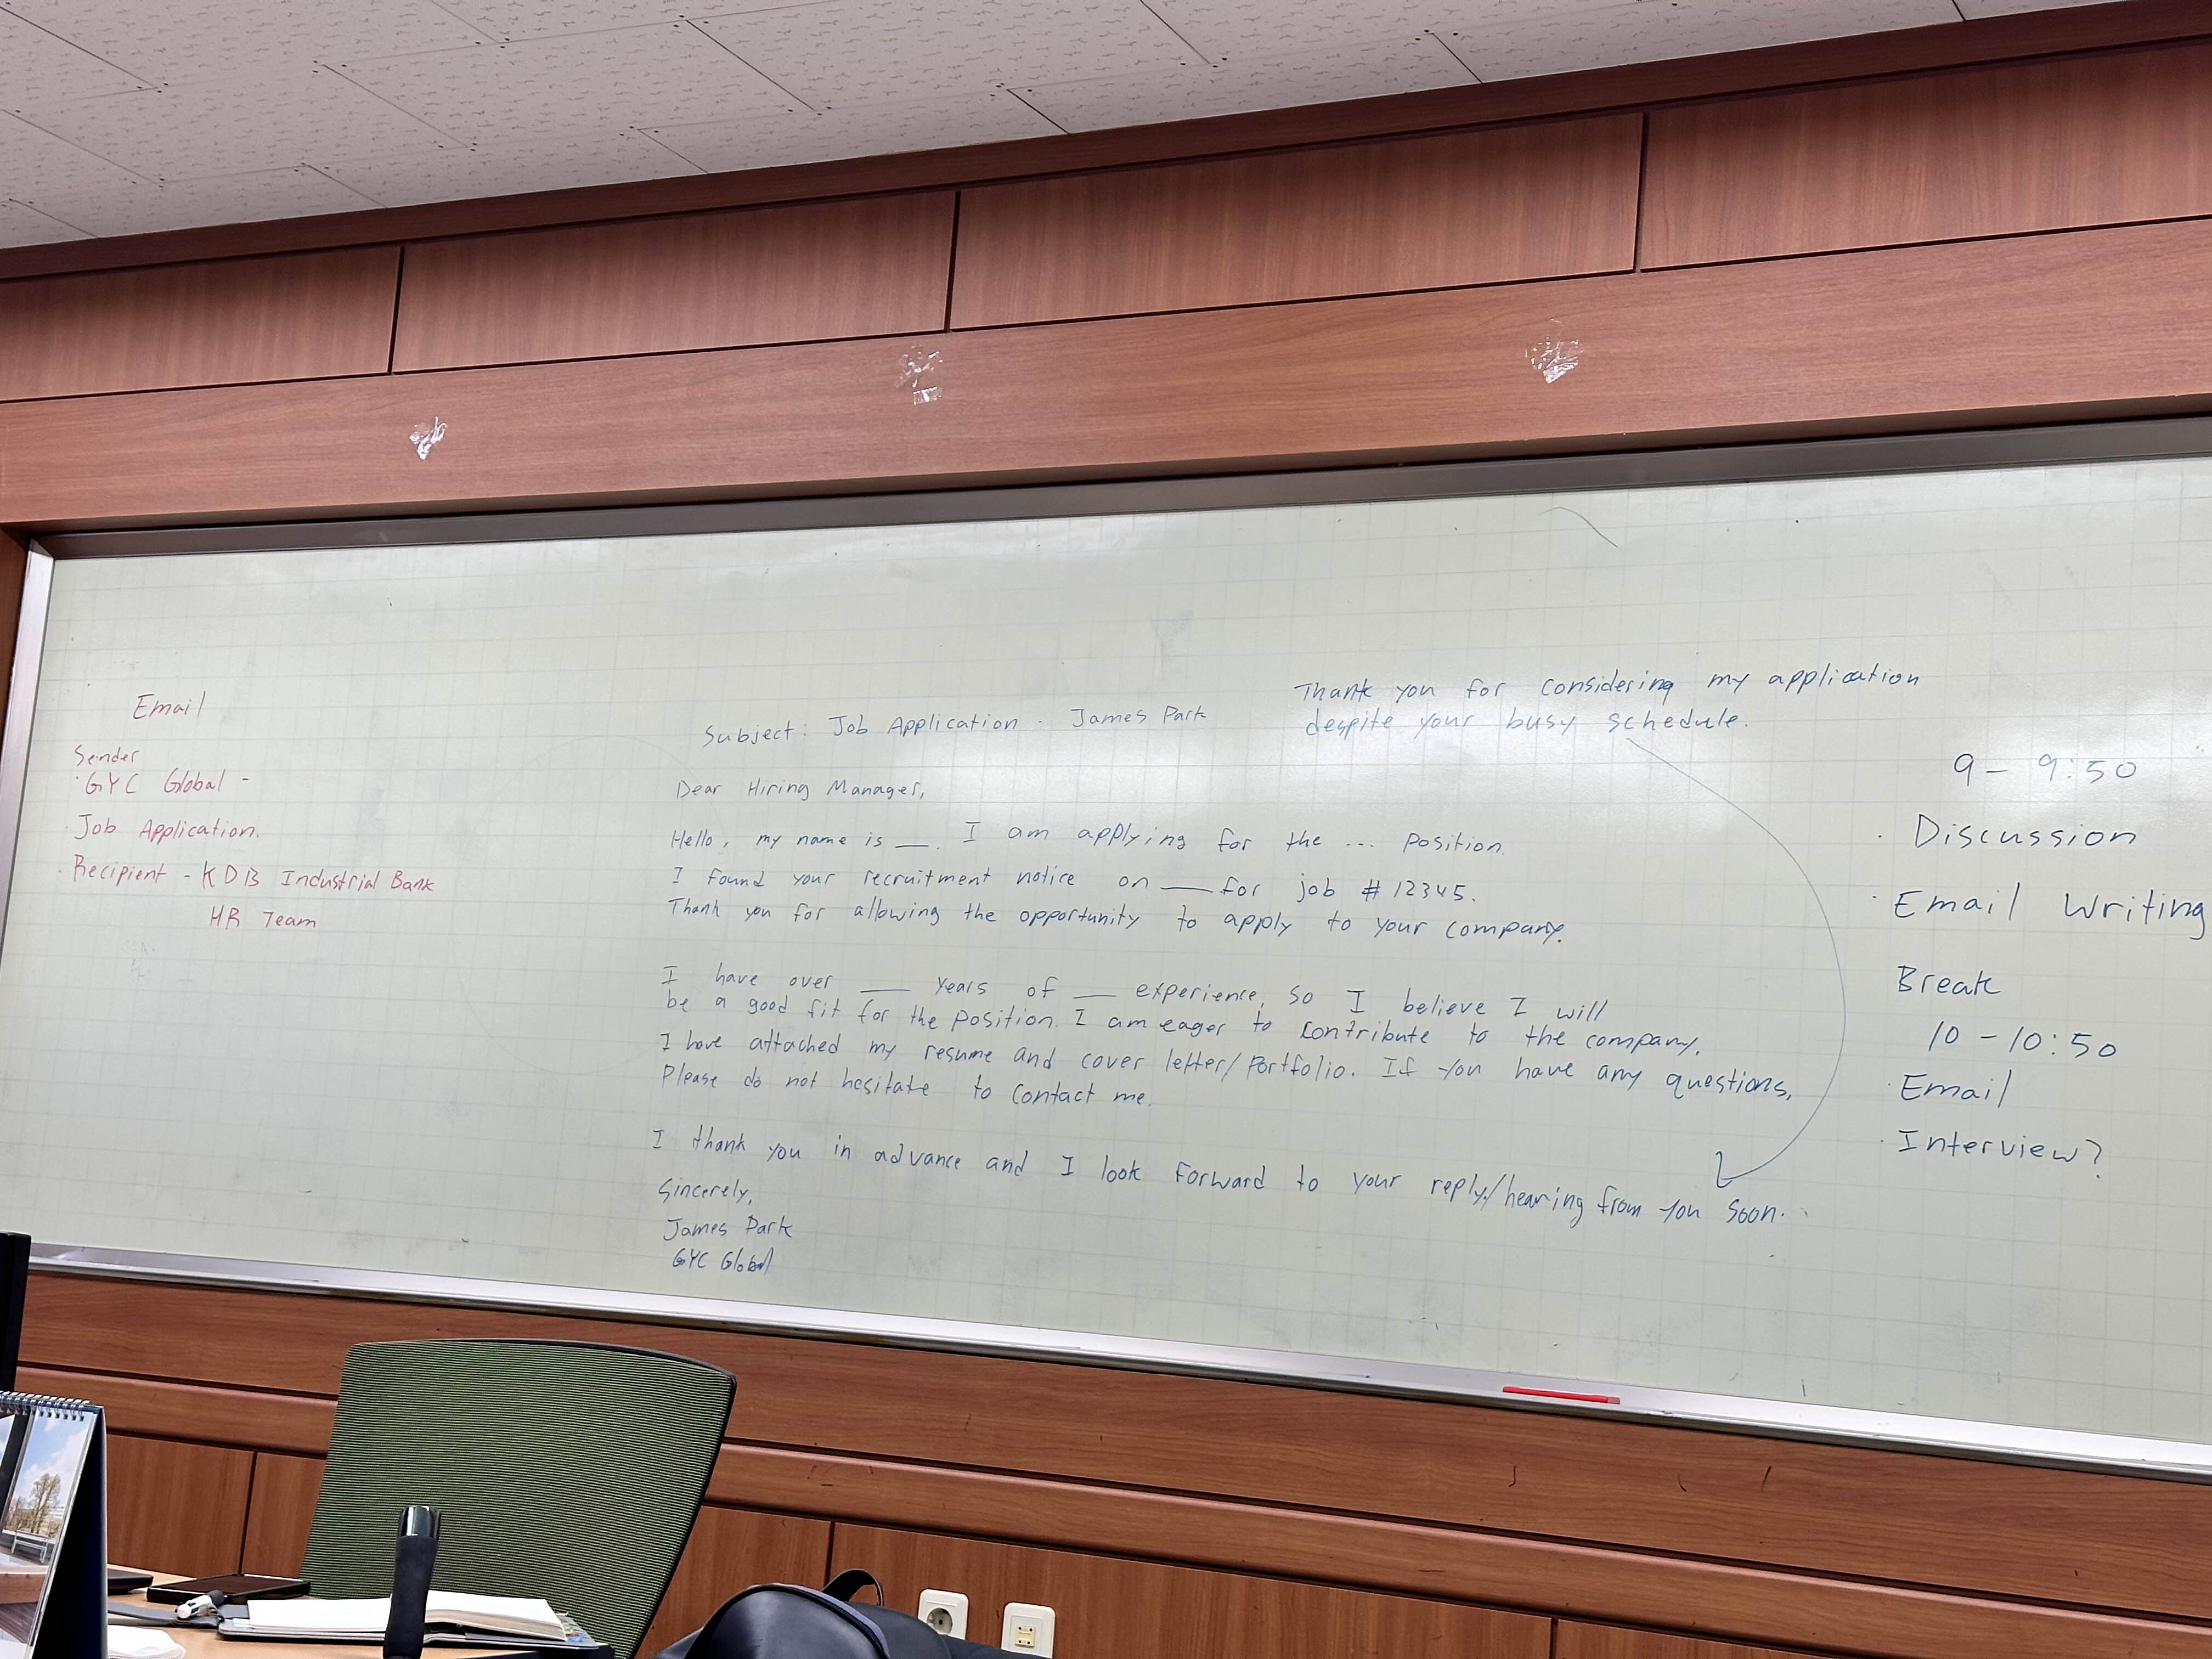 Email
Sender
· GYC Global -
· Job Application.
· Recipient - KDB Industrial Bank
HR Team
Subject: Job Application - James Park
Dear Hiring Manager,
Hello, my name is __. I am applying for the ... position.
I found your recruitment notice on ___ for job # 12345.
Thank you for allowing the opportunity to apply to your company.
I have over ___ years of ___ experience, so I believe I will
be a good fit for the position. I am eager to contribute to the company.
I have attached my resume and cover letter/portfolio. If you have any questions,
Please do not hesitate to contact me.
I thank you in advance and I look forward to your reply./hearing from you soon.
Sincerely,
James Park
GYC Global
Thank you for considering my application
despite your busy schedule.
9 - 9:50
· Discussion
· Email Writing
Break
10 - 10:50
· Email
· Interview?